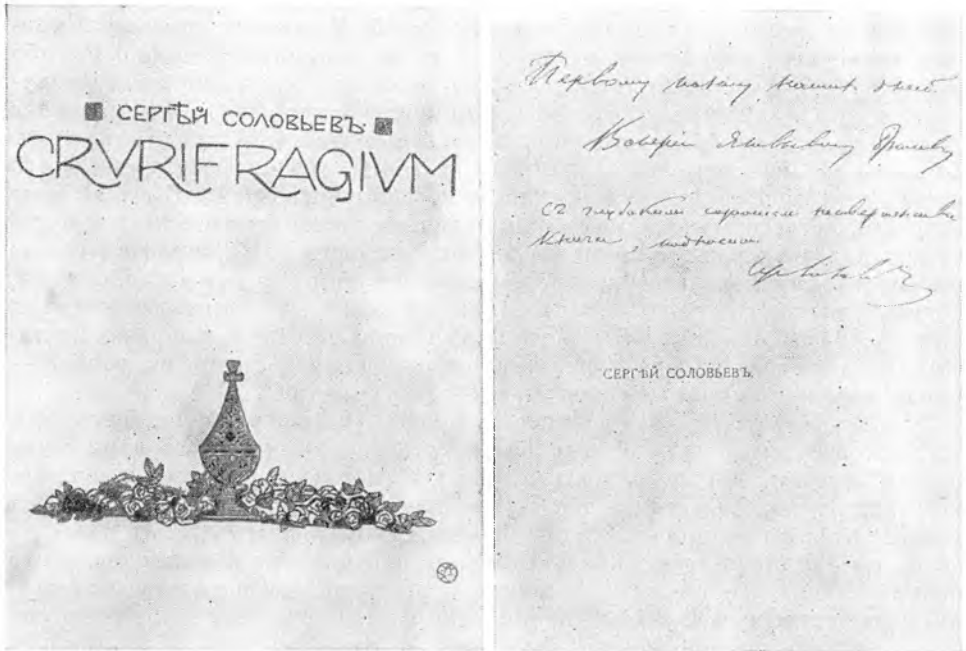 СЕРГѢЙ СОЛОВЬЕВЪ.
CRVRIFRAGIVM
Первому нашихъ дней
Валерію Яковлевичу Брюсову
съ глубокимъ несовершенства
книги,
СЕРГѢЙ СОЛОВЬЕВЪ.